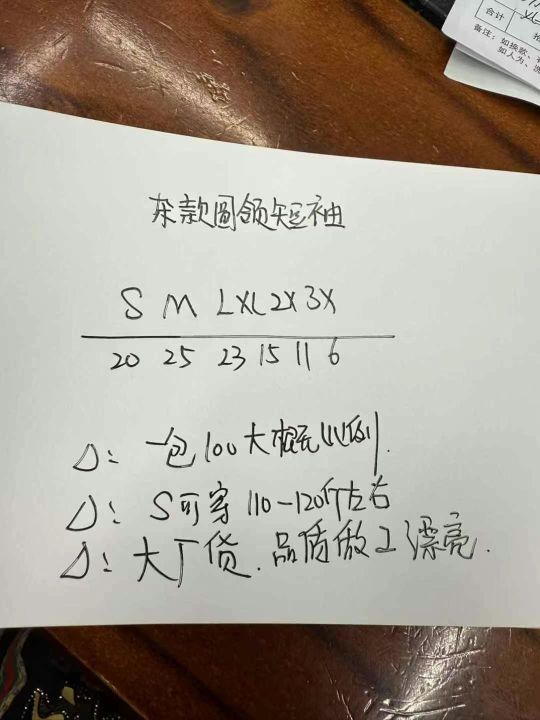 合计
备注：如换款、
如人为、洗
杂款圆领短袖
S M L XL 2X 3X
20 25 23 15 11 6
△：一包100大概比例.
△：S可穿110-120斤左右
△：大厂货.品质做工漂亮.